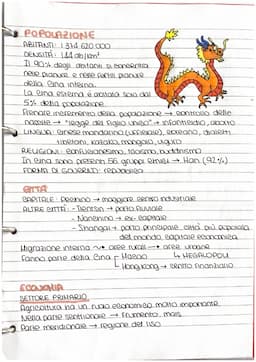 POPOLAZIONE
ABITANTI: 1 374 620 000
DENSITÀ: 144 ab/km²
Il 90% degli abitanti si concentra
nelle pianure e nelle parti pianure
della Cina interna.
La Cina esterna è abitata solo dal
5% della popolazione.
Frenare incremento della popolazione → controllo delle
nascite → "legge del figlio unico" → infanticidio, aborto
LINGUA: cinese mandarino (ufficiale), coreano, dialetti
tibetani, kazako, mongolo, uiguro
RELIGIONI: confucianesimo, taoismo, buddhismo
In Cina sono presenti 56 gruppi etnici → Han (92%)
FORMA DI GOVERNO: repubblica
CITTÀ
CAPITALE: Pechino → maggiore centro industriale
ALTRE CITTÀ: - Tientsin → porto fluviale
- Nanchino → ex-capitale
- Shangai → porto principale, città più popolosa
del mondo, capitale economica
Migrazione interna → aree rurali → aree urbane
Fanno parte della Cina Macao ↳ MEGALOPOLI
Hong Kong → centro finanziario
ECONOMIA
SETTORE PRIMARIO
Agricoltura ha un ruolo economico molto importante.
Nella parte settentrionale → frumento, mais
Parte meridionale → regione del riso